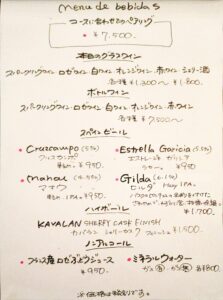 menu de bebidas
コースに合わせるペアリング
¥7,500.
本日のグラスワイン
スパークリングワイン ロゼワイン 白ワイン オレンジワイン 赤ワイン シェリー酒
各種 ¥1,300〜 ¥1,800.
ボトルワイン
スパークリングワイン ロゼワイン 白ワイン オレンジワイン 赤ワイン
各種 ¥7,500〜
スペインビール
• Cruzcampo
¥950.
• Estrella Galicia
エストレージャ ガリシア
¥950.
• Mahou
マオウ
IPA ¥950.
• Gilda
ヒルダ Hazy IPA.
¥1,700
ハイボール
KAVALAN SHERRY CASK FINISH
カバラン シェリーカスク フィニッシュ ¥1,500
ノンアルコール
• フランス産ロゼぶどうジュース
¥950.
• ミネラルウォーター
¥800
※価格は税別です。